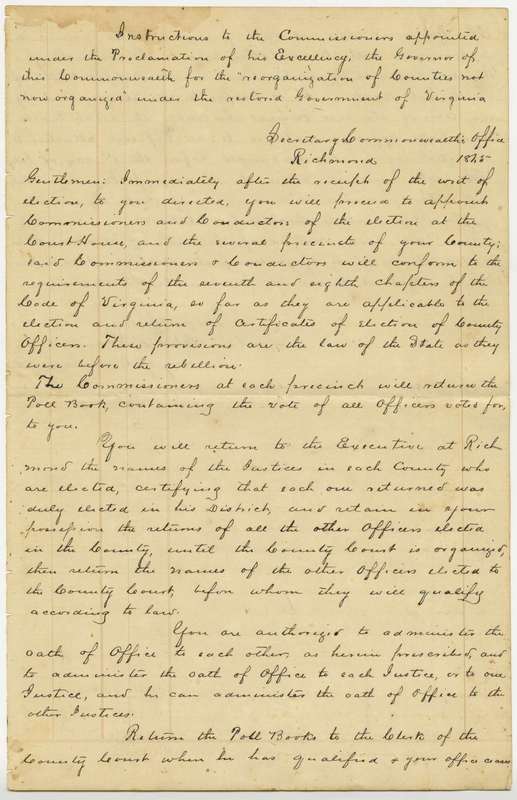 Instructions to the Commissioners appointed
under the Proclamation of his Excellency, the Governor of
this Commonwealth for the "reorganization of Counties not
now organized" under the restored Government of Virginia
Secretary Commonwealth's Office
Richmond 1865
Gentlemen: Immediately after the receipt of the writ of
election, to you directed, you will proceed to appoint
Commissioners and Conductors of the election at the
Court House, and the several precincts of your County;
said Commissioners & Conductors will conform to the
requirements of the seventh and eighth chapters of the
Code of Virginia, so far as they are applicable to the
election and return of Certificates of Election of County
Officers. These provisions are the law of the State as they
were before the rebellion.
The Commissioners at each precinct will return the
Poll Book, containing the vote of all Officers voted for,
to you.
You will return to the Executive at Rich
mond the names of the Justices in each County who
are elected, certifying that each one returned was
duly elected in his District, and retain in your
possession the returns of all the other Officers elected
in the County, until the County Court is organized,
then return the names of the other Officers elected to
the County Court, before whom they will qualify
according to law.
You are authorized to administer the
oath of Office to each other, as herein prescribed, and
to administer the oath of Office to each Justice, or to one
Justice, and he can administer the oath of Office to the
other Justices.
Return the Poll Books to the Clerk of the
County Court when he has qualified & your office